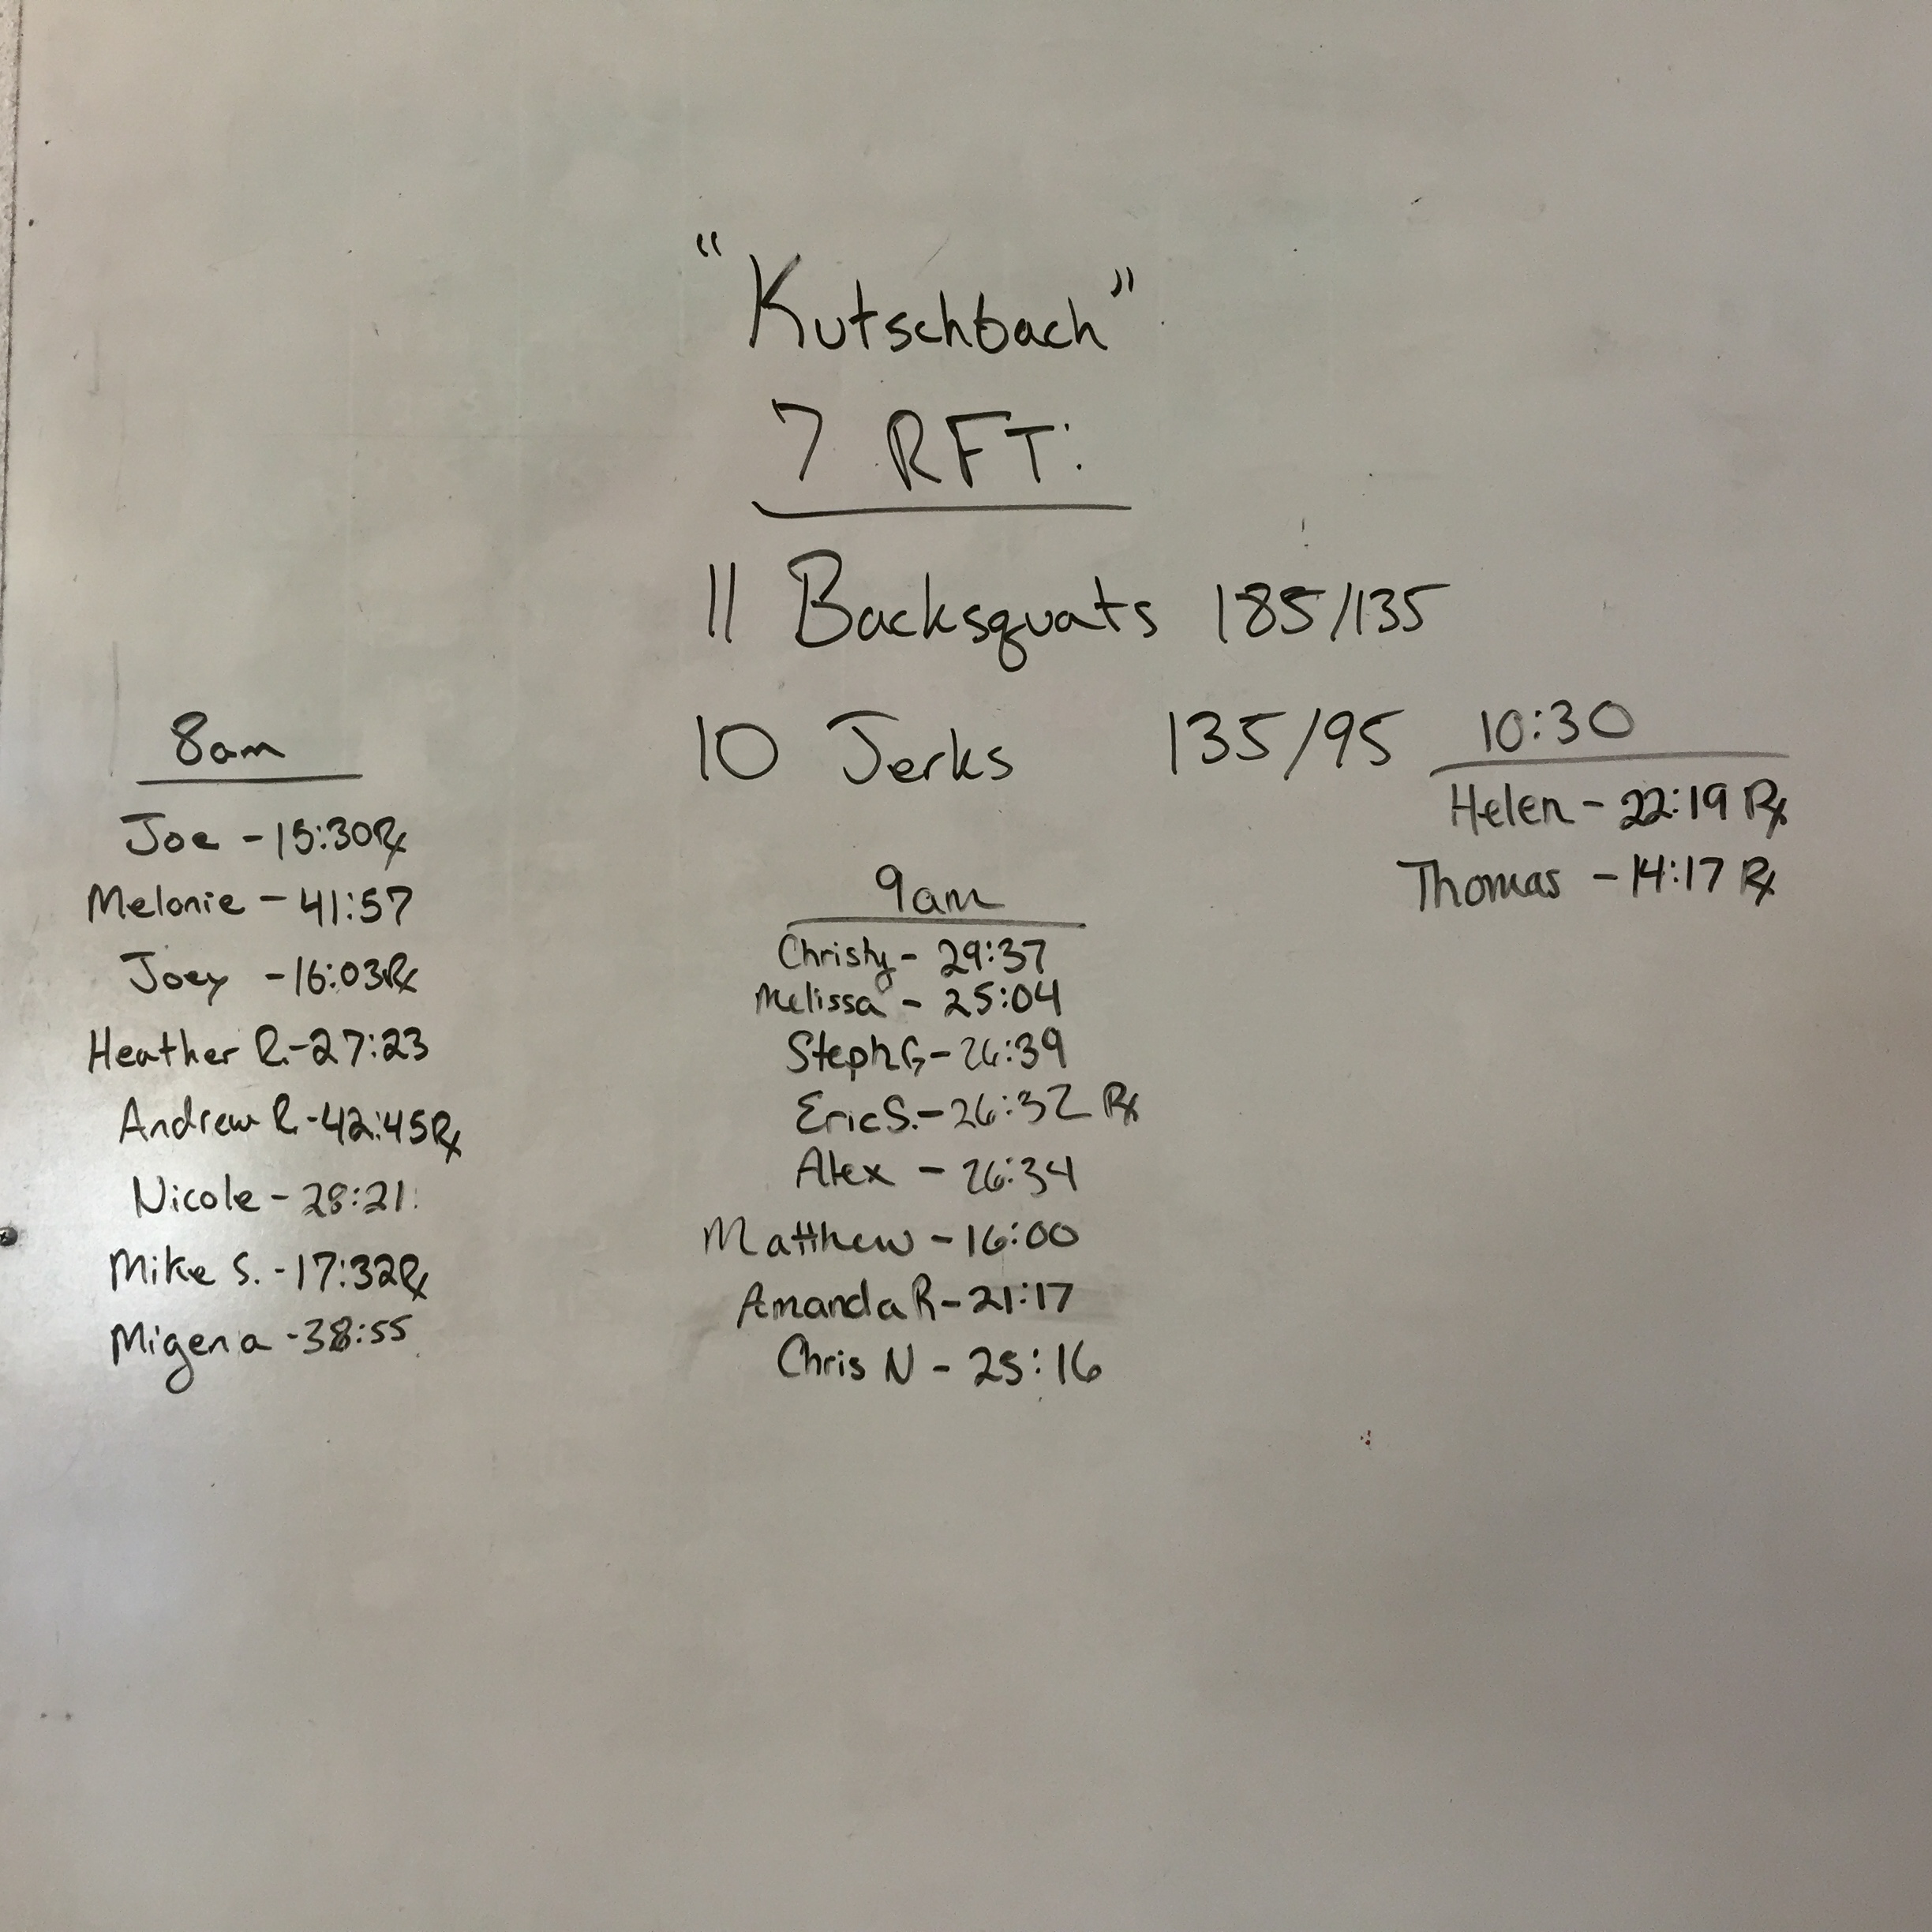 "Kutschbach"
7 RFT:
11 Backsquats 185/135
10 Jerks 135/95
8am
Joe - 15:30 Rx
Melonie - 41:57
Joey - 16:03 Rx
Heather R. - 27:23
Andrew R. - 42:45 Rx
Nicole - 28:21
Mike S. - 17:32 Rx
Migena - 38:55
9am
Christy - 29:37
Melissa - 25:04
Steph G - 26:39
Eric S. - 26:32 Rx
Alex - 26:34
Matthew - 16:00
Amanda R - 21:17
Chris N - 25:16
10:30
Helen - 22:19 Rx
Thomas - 14:17 Rx